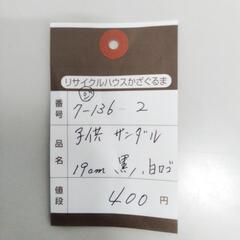 リサイクルハウスかざぐるま
番号 7-136 2
品名 子供 サンダル
19cm 黒、白ロゴ
値段 400 円